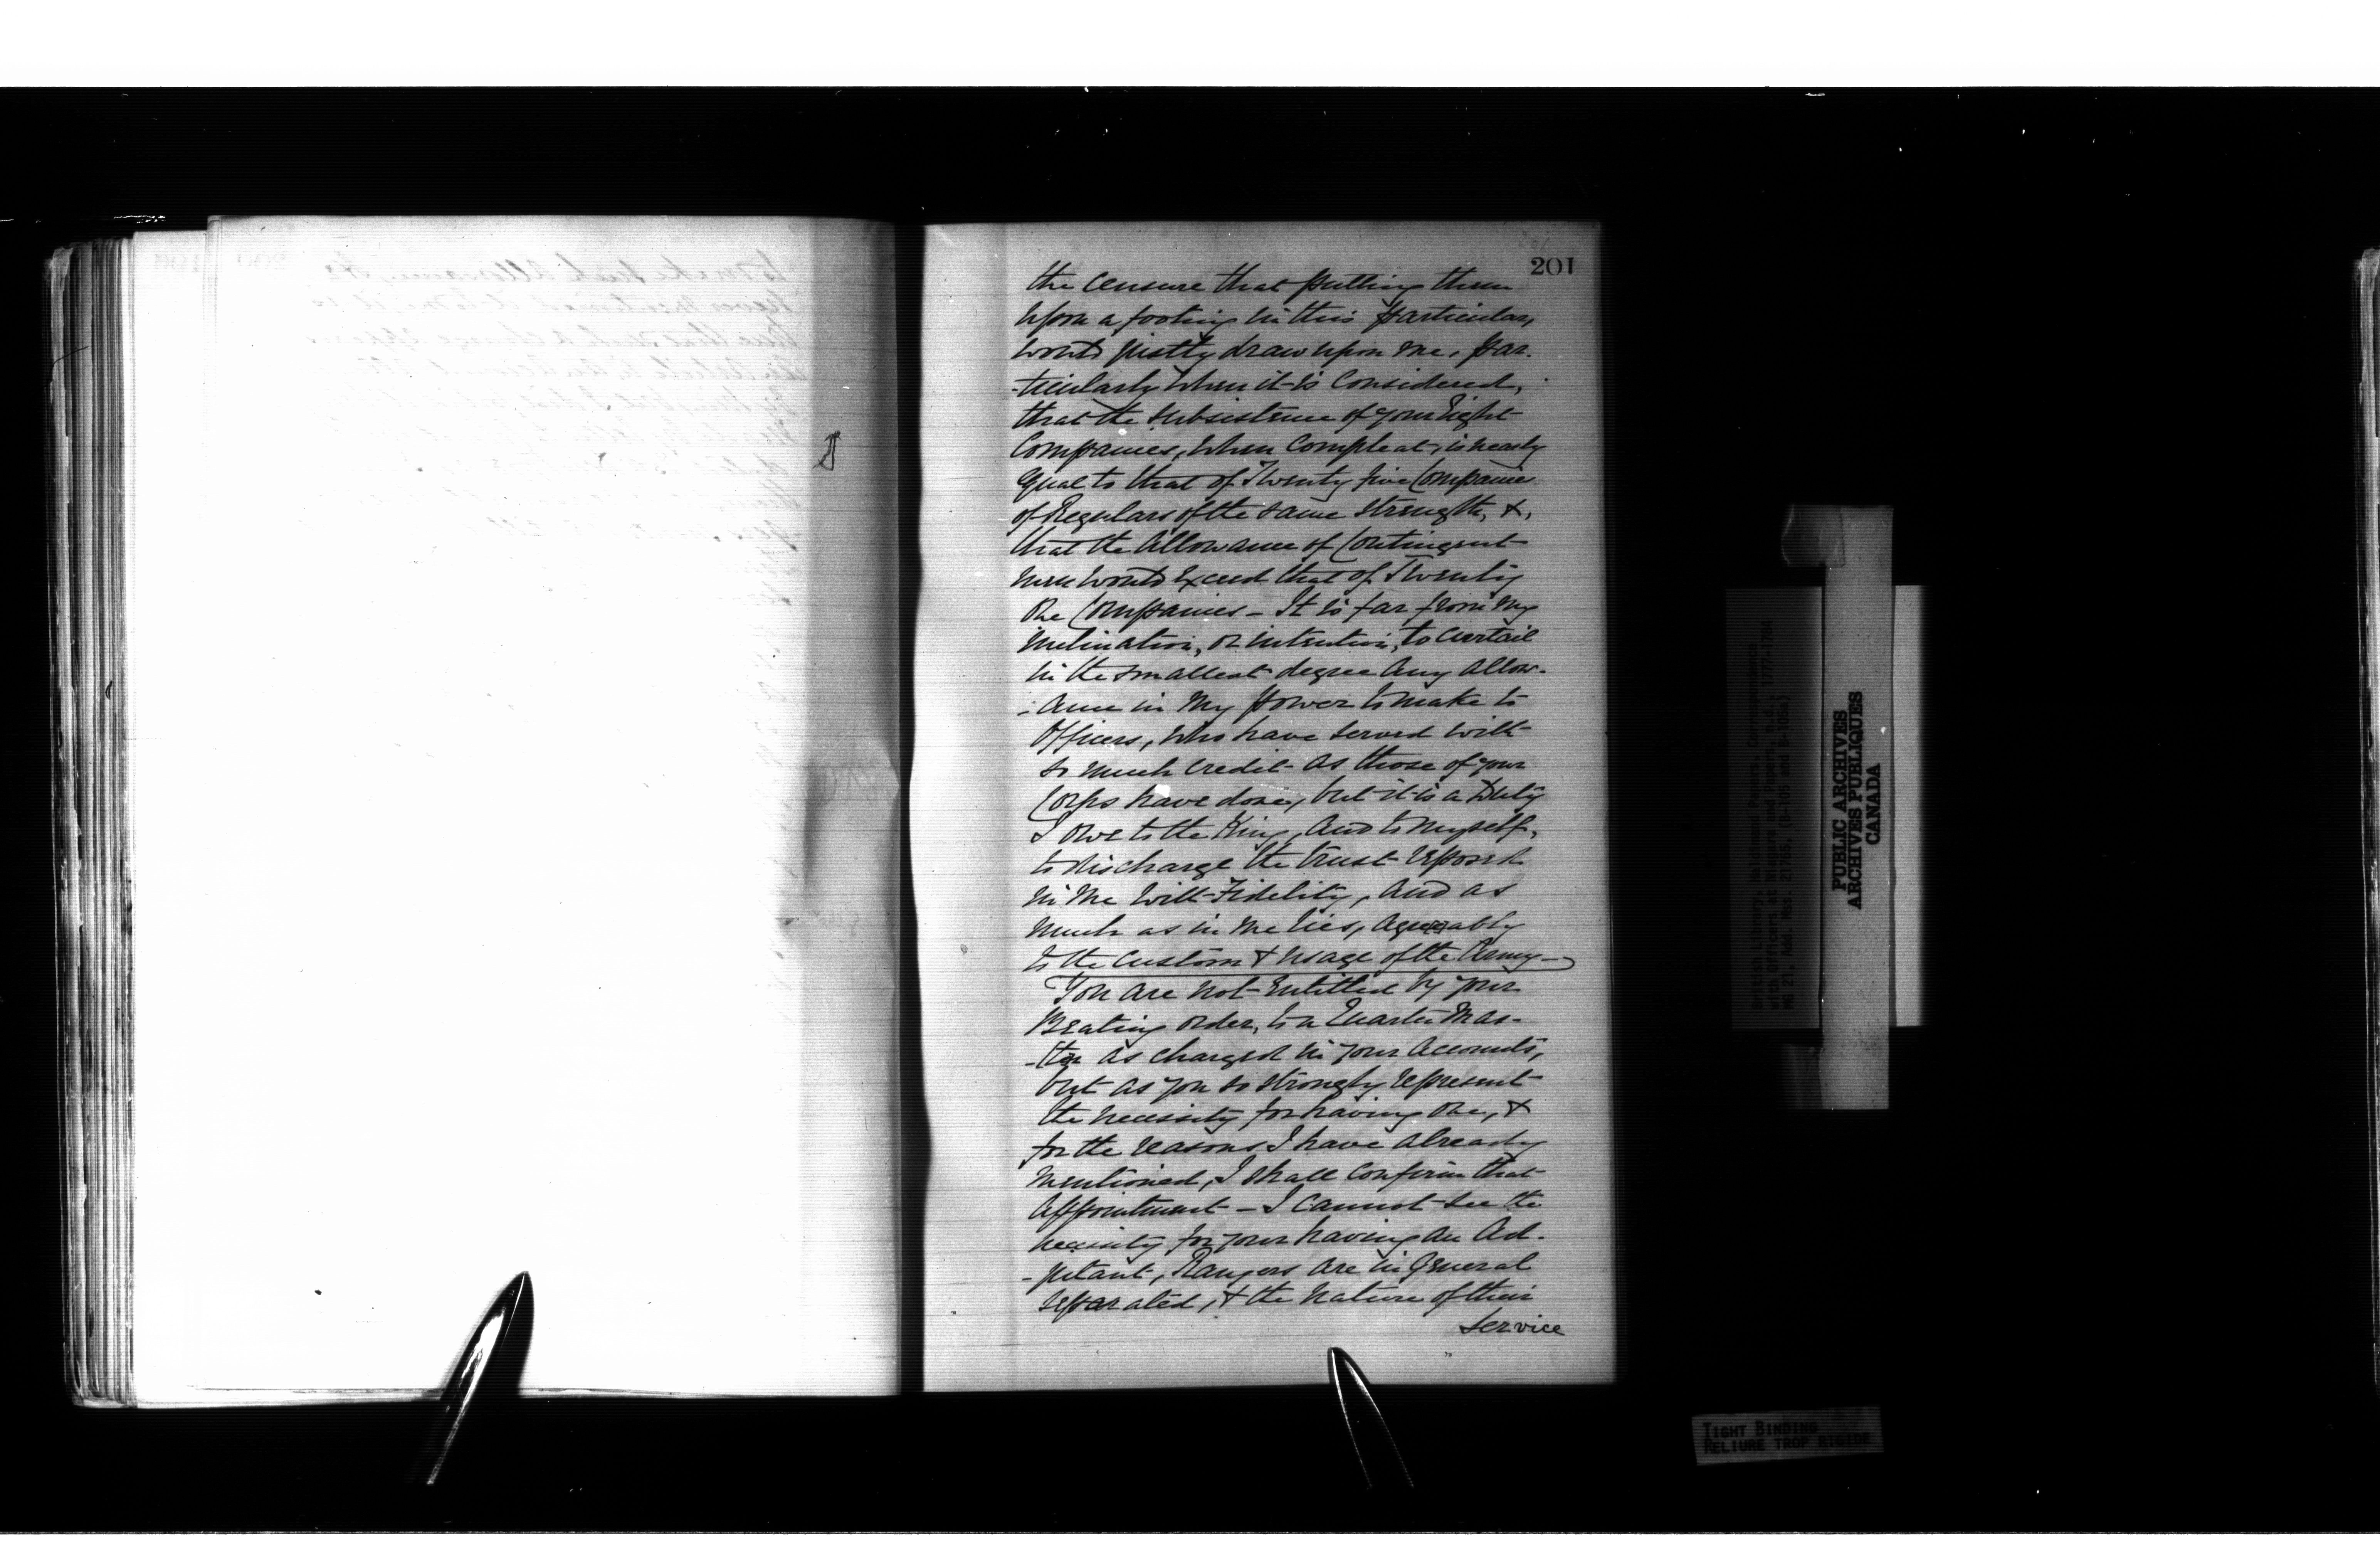 201
the censure that putting them
upon a footing in this particular,
would justly draw upon me, par-
-ticularly when it is Considered,
that the subsistence of your Eight
Companies, when Compleat, is nearly
Equal to that of Twenty five Companies
of Regulars of the same strength, &,
that the Allowance of Contingent
men would Exceed that of Twenty
One Companies - It is far from my
inclination, or intention, to curtail
in the smallest degree any allow-
-ance in my power to make to
Officers, who have served with
so much credit as those of your
Corps have done, but it is a Duty
I owe to the King, and to myself,
to discharge the trust reposed
in me with Fidelity, and as
much as in me lies, agreeably
to the custom & usage of the Army -
You are not Entitled by your
Beating order, to a Quarter Mas-
-ter as charged in your Accounts,
but as you so strongly represent
the necessity for having One, &
for the reasons I have already
mentioned, I shall confirm that
Appointment - I cannot see the
necessity for your having an Ad-
-jutant, Rangers are in General
separated, & the nature of their
service
British Library, Haldimand Papers, Correspondence
with Officers at Niagara and Papers, n.d., 1777-1784
MG 21, Add. Mss. 21765, (B-105 and B-105a)
PUBLIC ARCHIVES
ARCHIVES PUBLIQUES
CANADA
TIGHT BINDING
RELIURE TROP RIGIDE